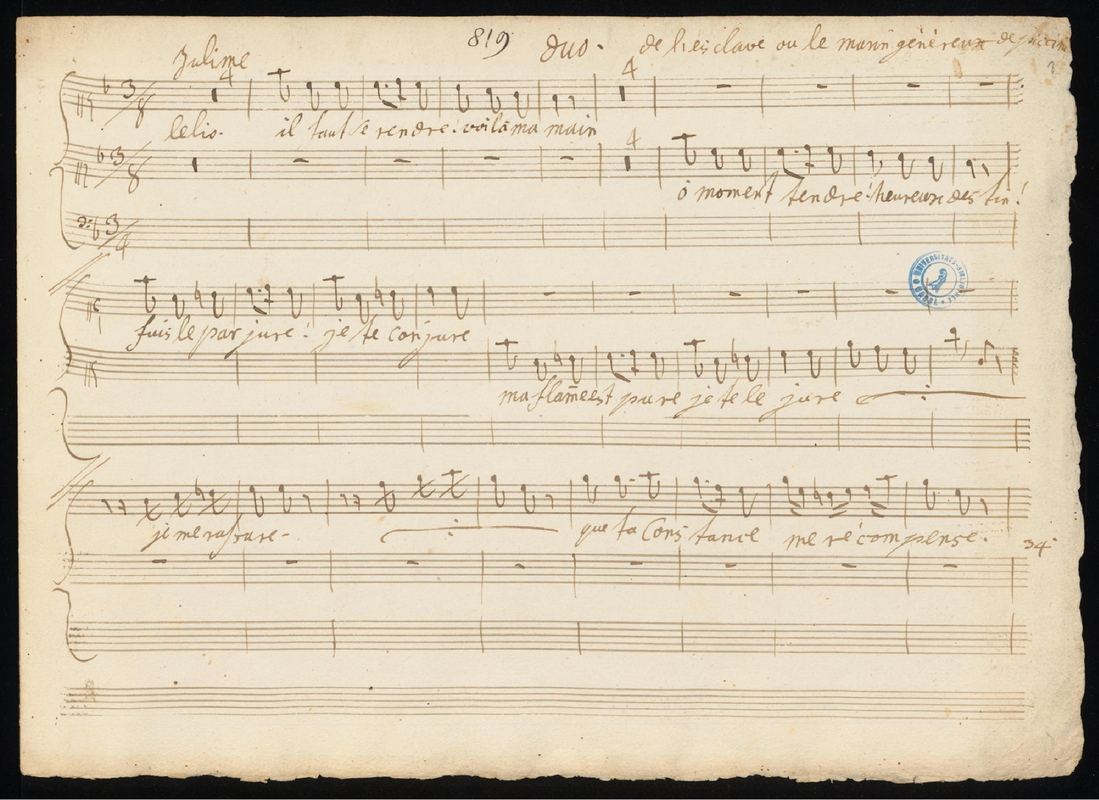 819 duo. de l'esclave ou le marin généreux de
Julime
4 4
3/8
lelio. il faut se rendre: voilà ma main
4
3/8
ô moment tendre! heureux destin!
3/4
fuis le parjure! je te conjure
ma flam̄e est pure je te le jure
je me rassure - que ta constance me récompense.
34
UNIVERSITÄTS-BIBLIOTHEK BASEL